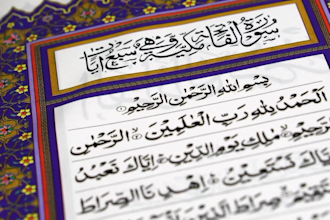 سُورَةُ الْفَاتِحَةِ مَكِّيَّةٌ وَهِيَ سَبْعُ آيَاتٍ
بِسْمِ اللهِ الرَّحْمٰنِ الرَّحِيمِ
اَلْحَمْدُ لِلّٰهِ رَبِّ الْعَالَمِينَ اَلرَّحْمٰنِ
الرَّحِيمِ مٰلِكِ يَوْمِ الدِّينِ اِيَّاكَ نَعْبُدُ
وَاِيَّاكَ نَسْتَعِينُ اِهْدِنَا الصِّرَاطَ
صِرَاطَ الَّذِينَ اَنْعَمْتَ